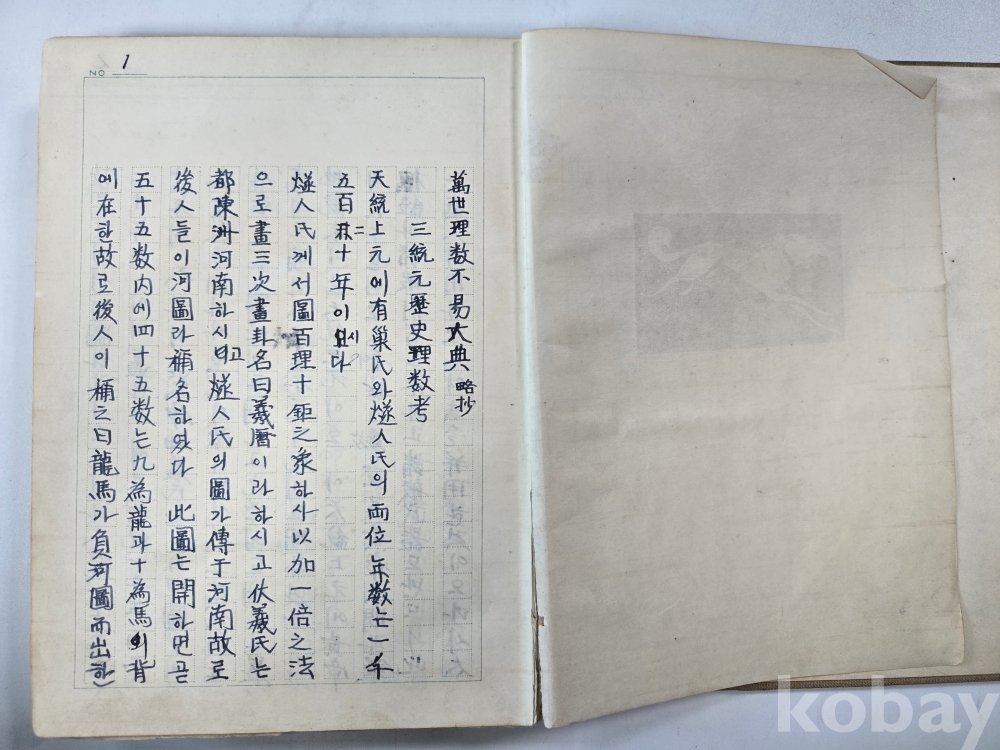 NO 1
萬世理数不易大典 略抄
三統元歷史理数考
天統上元에有巢氏와燧人氏의両位年数는一千
五百二十年이시다
燧人氏께서圖百理十鉅之象하사以加一倍之法
으로畫三次畫卦名曰羲暦이라하시고伏羲氏는
都陳洲河南하시고燧人氏의圖가傳于河南故로
後人들이河圖라稱名하였다此圖는開하면곧
五十五数内에四十五数는九為龍과十為馬의背
에在한故로後人이稱之曰龍馬가負河圖而出한
kobay